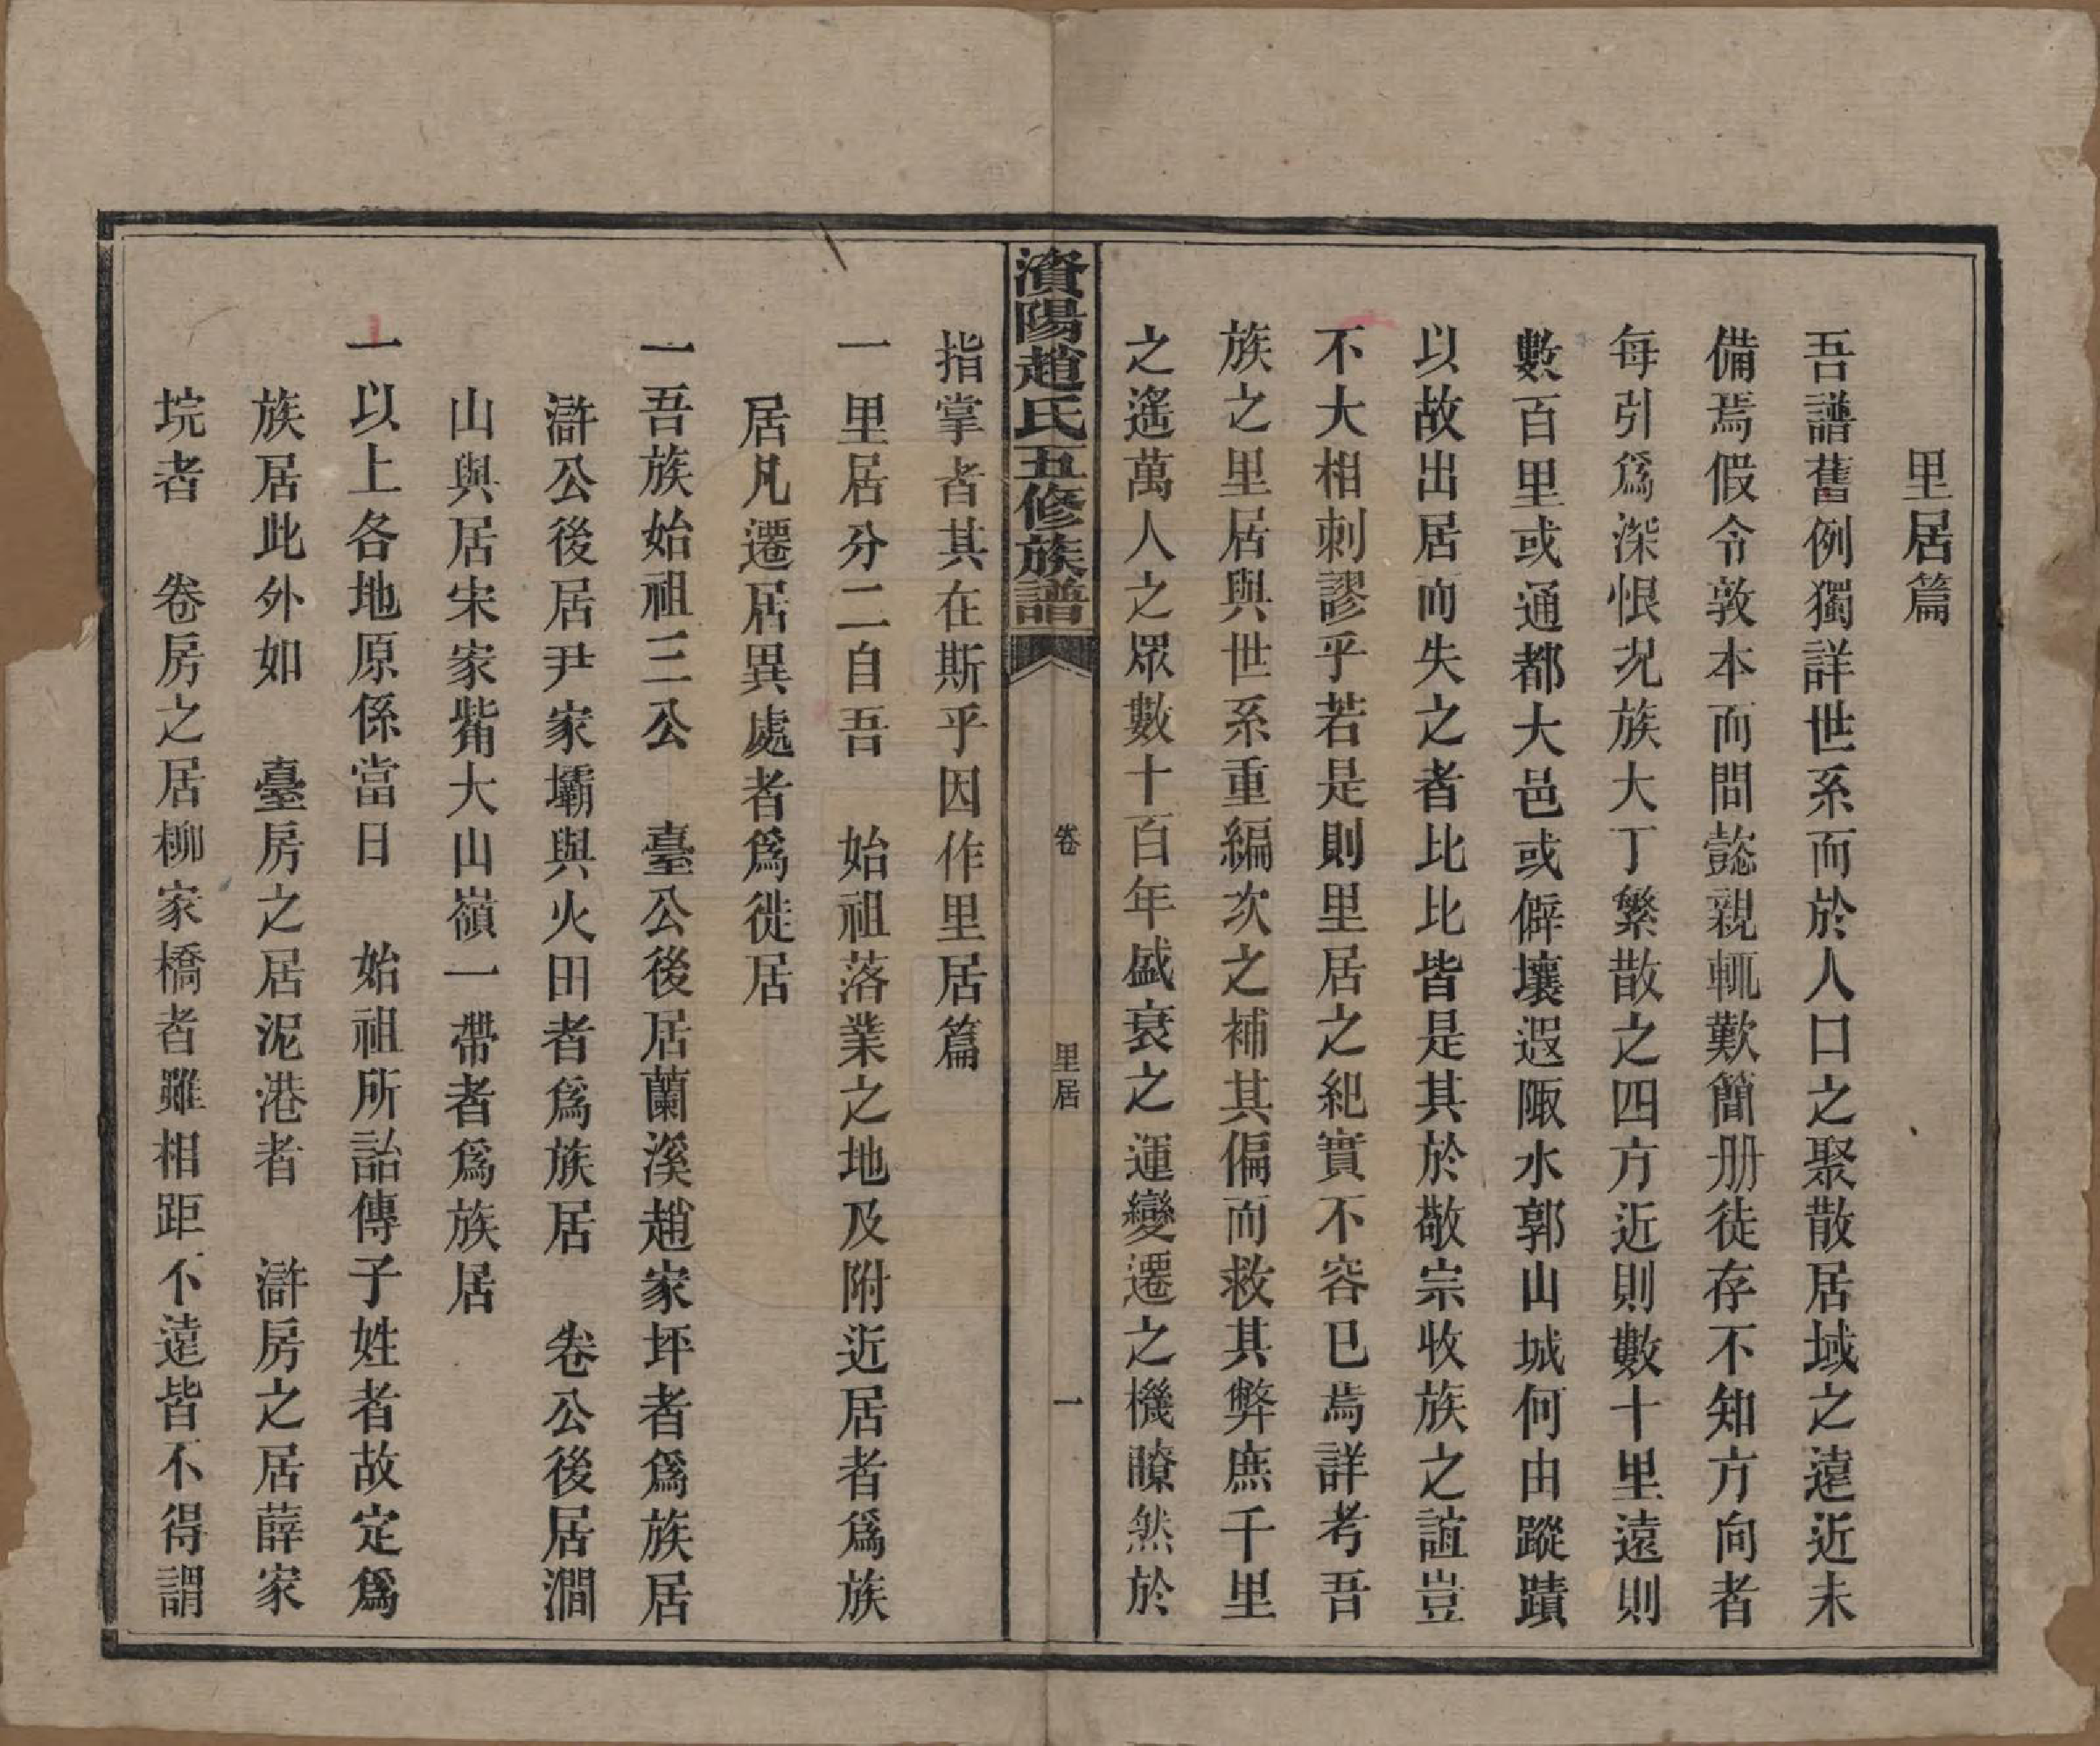 里居篇
吾譜舊例獨詳世系而於人口之聚散居域之遠近未
備焉假令敦本而問懿親輒歎簡册徒存不知方向者
每引爲深恨況族大丁繁散之四方近則數十里遠則
數百里或通都大邑或僻壤遐陬水郭山城何由蹤蹟
以故出居而失之者比比皆是其於敬宗收族之誼豈
不大相刺謬乎若是則里居之紀實不容已焉詳考吾
族之里居與世系重編次之補其偏而救其弊庶千里
之遙萬人之眾數十百年盛衰之運變遷之機瞭然於
濱陽趙氏五修族譜
卷
里居
一
指掌者其在斯乎因作里居篇
一里居分二自吾 始祖落業之地及附近居者爲族
居凡遷居異處者爲徙居
一吾族始祖三公 臺公後居蘭溪趙家坪者爲族居
滸公後居尹家壩與火田者爲族居 卷公後居澗
山與居宋家觜大山嶺一帶者爲族居
一以上各地原係當日 始祖所詒傳子姓者故定爲
族居此外如 臺房之居泥港者 滸房之居薛家
垸者 卷房之居柳家橋者雖相距不遠皆不得謂